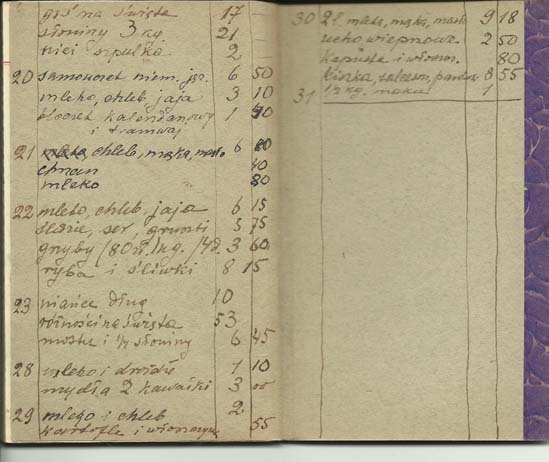 gęś na święta 17 —
słoniny 3 kg. 21 —
nici szpulka 2
20 samouczek niem. jęz. 6 50
mleko, chleb jaja 3 10
bloczek kalendarzowy 1 40
i tramwaj
21 chleb, mąka, masło 6 60
chrzan 40
mleko 80
22 mleko, chleb, jaja 6 15
śledzie, ser, 3 75
grzyby /80zł.)kg. /4d. 3 60
ryba i śliwki 8 15
23 niańce dług 10
różności na święta 53
masła i 1/4 słoniny 6 45
28 mleko i drożdże 1 10
mydła 2 kawałki 3 00
29 mleko i chleb 2
kartofle i włoszczyzna 55
30 2l. mleka, mąka, masło 9 18
ucho wieprzowe 2 50
kapusta i włoszcz. 80
kiszka, salceson, 8 55
31 1/2 kg. maku 1